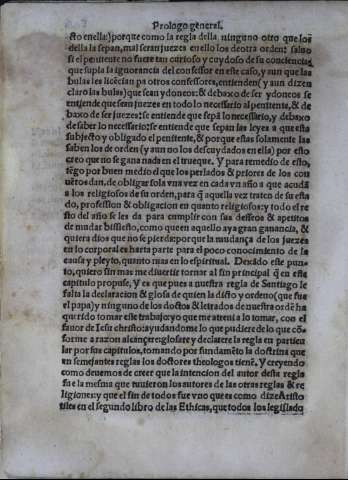 Prologo general.
sto en ella:) porque como la regla della ninguno otro que los
della la sepan, mal seran juezes en ello los de otra orden: saluo
si el penitente no fuere tan curioso y cuydoso de su conciencia
que supla la ignorancia del confessor en este caso, y aun que las
bulas les licēcian pa otros confessores, entienden (y aun dizen
claro las bulas) que sean ydoneos: & debaxo de ser ydoneos se
entiende que sem juezes en todo lo necessario al penitente, & de
baxo de ser juezes: se entiende que sepā lo necessario, y debaxo
de saber lo necessario: se entiende que sepan las leyes a que esta
subjecto y obligado el penitente, & porque estas solamente las
saben los de orden (y aun no los descuydados en ella) por esto
creo que no se gana nada en el trueque. Y para remedio de esto,
tēgo por buen medio el que los perlados & priores de los con
uētos dan, de obligar sola vna vez en cada vn año a que acudā
a los religiosos de su orden, para q̄ aquella vez traten de su esta
do, profession & obligacion en quanto religiosos: y todo el re
sto del año se les da para cumplir con sus desseos & apetitos
de mudar bissiesto, como queen aquello aya gran ganancia, &
quiera dios que no se pierda: porque la mudança de los juezes
en lo corporal es harta parte para el poco conocimiento de la
causa y pleyto, quanto mas en lo espiritual. Dexādo este pun
to, quiero sin mas me diuertir tornar al fin principal q̄ en este
capitulo propuse, Y es que pues a nuestra regla de Santiago le
falta la declaracion & glosa de quien la dicto y ordeno (que fue
el papa) y ninguno de los doctos & letrados de nuestra ordē ha
querido tomar este trabajo: yo que me atreui a lo tomar, con el
fauor de Iesu christo: ayudandome lo que pudiere de lo que cō
forme a razon alcançare: glosare y declarare la regla en particu
lar por sus capitulos, tomando por fundamēto la doctrina que
en semejantes reglas los doctores theologos tienē. Y creyendo
como deuemos de creer que la intencion del autor desta regla
fue la mesma que tuuieron los autores de las otras reglas & re
ligiones: y que el fin de todos fue vno que es como dize Aristo
tiles en el segundo libro de las Ethicas, que todos los legislado